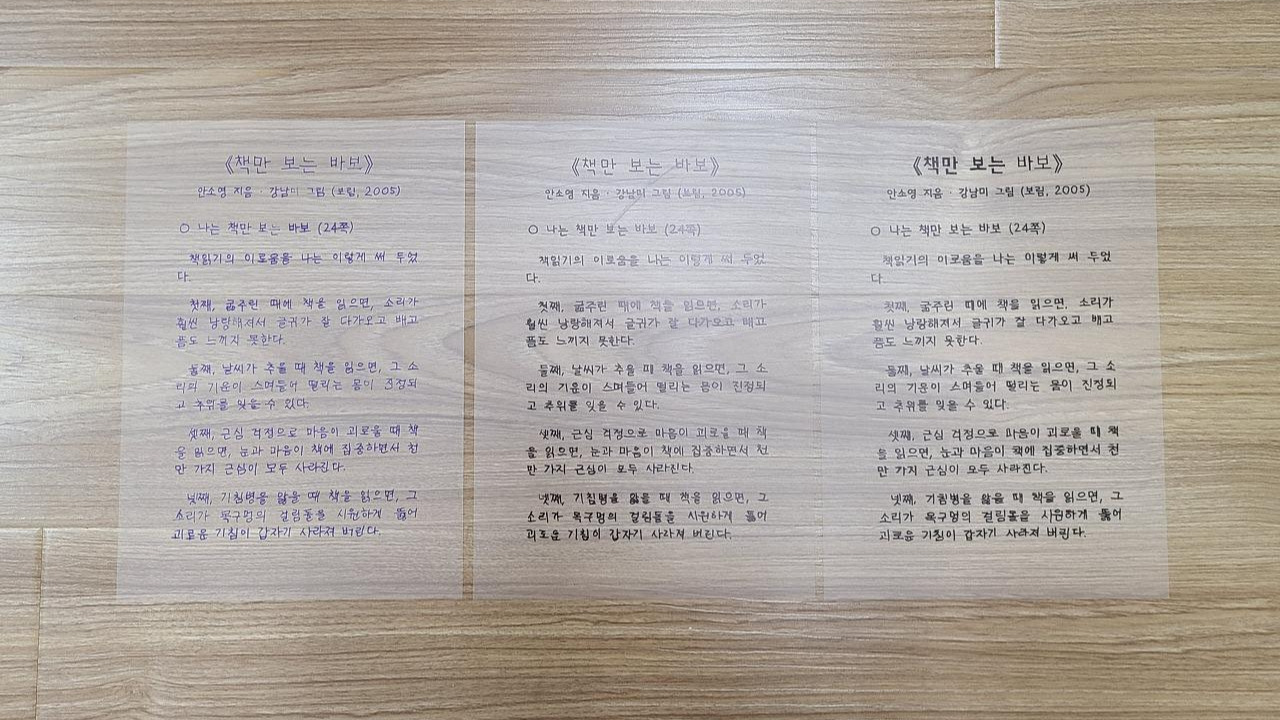 《책만 보는 바보》
안소영 지음 · 강남미 그림 (보림, 2005)
○ 나는 책만 보는 바보 (24쪽)
책읽기의 이로움을 나는 이렇게 써 두었
다.
첫째, 굶주린 때에 책을 읽으면, 소리가
훨씬 낭랑해져서 글귀가 잘 다가오고 배고
픔도 느끼지 못한다.
둘째, 날씨가 추울 때 책을 읽으면, 그 소
리의 기운이 스며들어 떨리는 몸이 진정되
고 추위를 잊을 수 있다.
셋째, 근심 걱정으로 마음이 괴로울 때 책
을 읽으면, 눈과 마음이 책에 집중하면서 천
만 가지 근심이 모두 사라진다.
넷째, 기침병을 앓을 때 책을 읽으면, 그
소리가 목구멍의 걸림돌을 시원하게 뚫어
괴로운 기침이 갑자기 사라져 버린다.
《책만 보는 바보》
안소영 지음 · 강남미 그림 (보림, 2005)
○ 나는 책만 보는 바보 (24쪽)
책읽기의 이로움을 나는 이렇게 써 두었
다.
첫째, 굶주린 때에 책을 읽으면, 소리가
훨씬 낭랑해져서 글귀가 잘 다가오고 배고
픔도 느끼지 못한다.
둘째, 날씨가 추울 때 책을 읽으면, 그 소
리의 기운이 스며들어 떨리는 몸이 진정되
고 추위를 잊을 수 있다.
셋째, 근심 걱정으로 마음이 괴로울 때 책
을 읽으면, 눈과 마음이 책에 집중하면서 천
만 가지 근심이 모두 사라진다.
넷째, 기침병을 앓을 때 책을 읽으면, 그
소리가 목구멍의 걸림돌을 시원하게 뚫어
괴로운 기침이 갑자기 사라져 버린다.
《책만 보는 바보》
안소영 지음 · 강남미 그림 (보림, 2005)
○ 나는 책만 보는 바보 (24쪽)
책읽기의 이로움을 나는 이렇게 써 두었
다.
첫째, 굶주린 때에 책을 읽으면, 소리가
훨씬 낭랑해져서 글귀가 잘 다가오고 배고
픔도 느끼지 못한다.
둘째, 날씨가 추울 때 책을 읽으면, 그 소
리의 기운이 스며들어 떨리는 몸이 진정되
고 추위를 잊을 수 있다.
셋째, 근심 걱정으로 마음이 괴로울 때 책
을 읽으면, 눈과 마음이 책에 집중하면서 천
만 가지 근심이 모두 사라진다.
넷째, 기침병을 앓을 때 책을 읽으면, 그
소리가 목구멍의 걸림돌을 시원하게 뚫어
괴로운 기침이 갑자기 사라져 버린다.